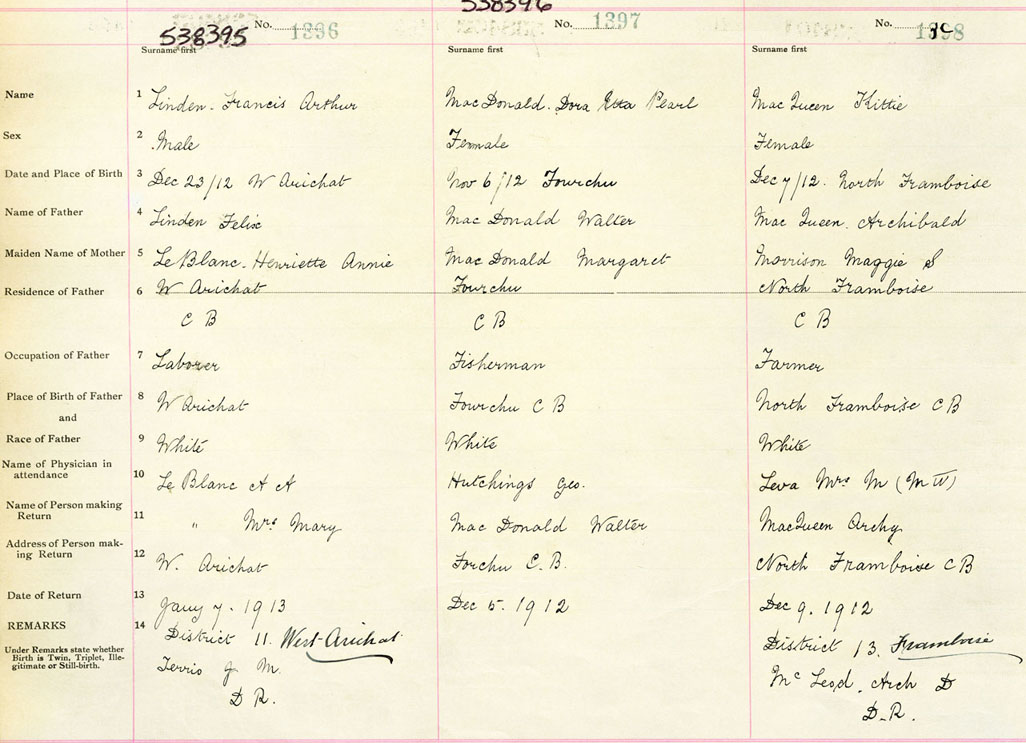 538396
538395 No. 1396 No. 1397 No. 1398
Surname first Surname first Surname first
Name 1 Linden. Francis Arthur MacDonald. Dora Etta Pearl MacQueen Kittie
Sex 2 Male Female Female
Date and Place of Birth 3 Dec 23/12 W Arichat Nov 6/12 Fourchu Dec 7/12. North Framboise
Name of Father 4 Linden Felix MacDonald Walter MacQueen. Archibald
Maiden Name of Mother 5 LeBlanc. Henriette Annie MacDonald Margaret Morrison Maggie S
Residence of Father 6 W Arichat Fourchu North Framboise
C B C B C B
Occupation of Father 7 Laborer Fisherman Farmer
Place of Birth of Father 8 W Arichat Fourchu C B North Framboise C B
and
Race of Father 9 White White White
Name of Physician in
attendance 10 Le Blanc A A Hutchings Geo. Mrs M (M W)
Name of Person making
Return 11 " Mrs Mary MacDonald Walter MacQueen Archy
Address of Person mak-
ing Return 12 W. Arichat Forchu C.B. North Framboise C B
Date of Return 13 Jany 7. 1913 Dec 5. 1912 Dec 9. 1912
REMARKS 14 District 11. West Arichat District 13. Framboise
Under Remarks state whether
Birth is Twin, Triplet, Ille-
gitimate or Still-birth.
Terrio J M. McLeod, Arch D
D R. D.R.